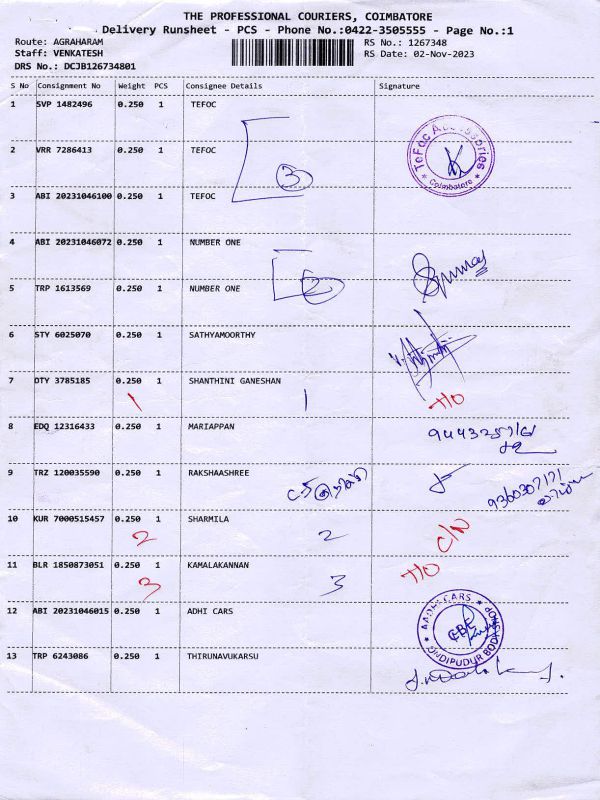 THE PROFESSIONAL COURIERS, COIMBATORE
Delivery Runsheet - PCS - Phone No.:0422-3505555 - Page No.:1
Route: AGRAHARAM RS No.: 1267348
Staff: VENKATESH RS Date: 02-Nov-2023
DRS No.: DCJB126734801
S No Consignment No Weight PCS Consignee Details Signature
1 SVP 1482496 0.250 1 TEFOC
2 VRR 7286413 0.250 1 TEFOC
TeFoc Accessories Coimbatore
3
3 ABI 20231046100 0.250 1 TEFOC
4 ABI 20231046072 0.250 1 NUMBER ONE
5 TRP 1613569 0.250 1 NUMBER ONE
2
6 STY 6025070 0.250 1 SATHYAMOORTHY
7 DTY 3785185 0.250 1 SHANTHINI GANESHAN
1 1 T/O
8 EDQ 12316433 0.250 1 MARIAPPAN
9 TRZ 120035590 0.250 1 RAKSHAASHREE
9360307171
10 KUR 7000515457 0.250 1 SHARMILA
2 2 C/N
11 BLR 1850873051 0.250 1 KAMALAKANNAN
3 3 T/O
12 ABI 20231046015 0.250 1 ADHI CARS
AADHI CARS
CBE
13 TRP 6243086 0.250 1 THIRUNAVUKARSU